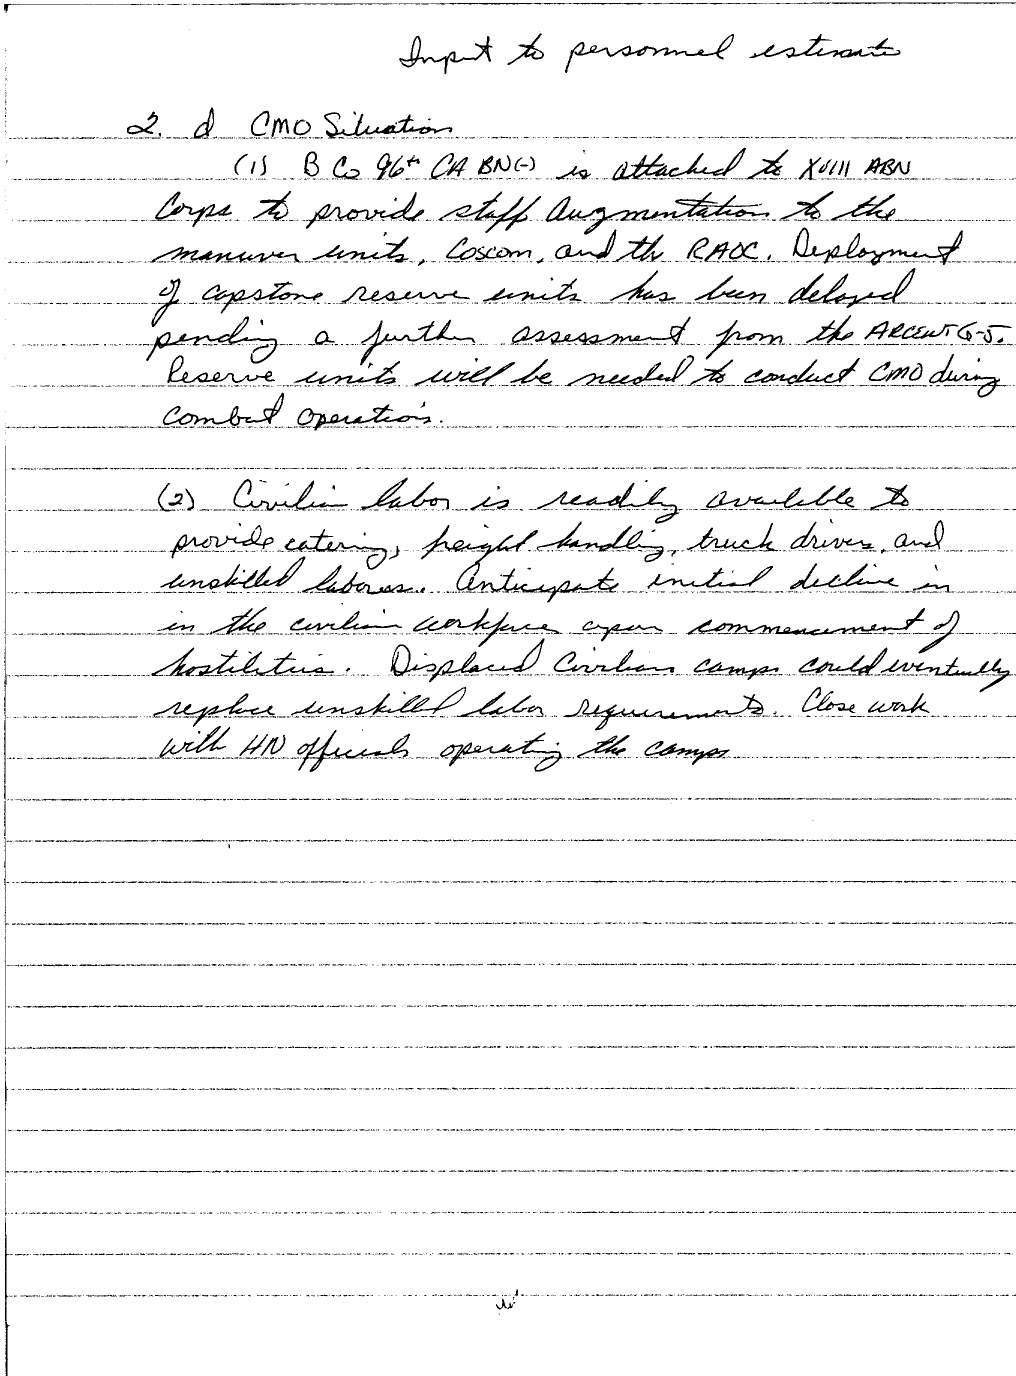 Input to personnel estimate
2. d CMO Situation
(1) B Co 96th CA BN(-) is attached to XVIII ABN
Corps to provide staff Augmentation to the
maneuver units, Coscom, and th RAOC. Deployment
of capstone reserve units has been delayed
pending a further assessment from the ARCENT G-5.
Reserve units will be needed to conduct CMO during
combat operations.
(2) Civilian labor is readily available to
provide catering, freight handling, truck drivers, and
unskilled laborers. Anticipate initial decline in
in the civilian workforce upon commencement of
hostilities. Displaced Civilians camps could eventually
replace unskilled labor requirements. Close work
with HN officials operating the camps